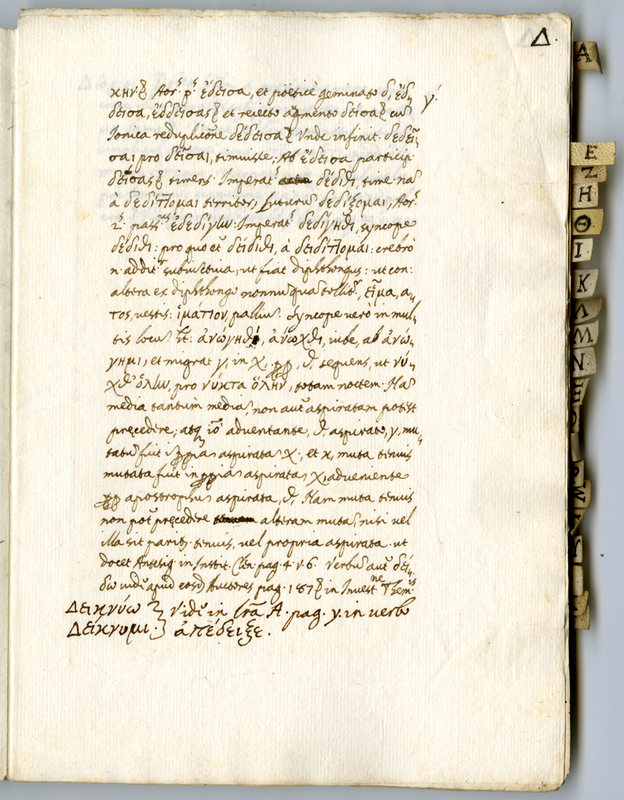 Δ.
κην⁊ Aor.ˢ pˢ ἔδεισα, et poëticè geminato δ, ἔδ-
δεισα, ἔδδεισας⁊ et reiecto augmento δεῖσα⁊ cũ
Ionica reduplicõne δέδεισα⁊ Vnde infinit. δεδεῖ-
σαι pro δεῖσαι, timuisse; Ab ἔδεισα particip.
δείσας⁊ timens. Imperat. δέδιθι, time. na
à δεδίττομαι territor, Futurũ δεδίξομαι, Aor.ˢ
2.ˢ passˢ ἐδεδίγην: Imperatˢ δεδίγηθι, syncope
δέδιθι: pro quo et δείδιθι, à δειδίττομαι: crebrò
n. additʳ subiunctiua, ut fiat diphthongus: ut con-
altera ex diphthongo nonnũquã tollitʳ, εἷμα, α-
τος, uestis: ἱμάτιον, palliũ. Syncope uerò in mul-
tis locũ ἀνώγηθι, ἄνωχθι, iube, ab ἀνώ-
γημι, et migrat γ, in χ, ꝓp, θ, sequens, ut νύ-
χθ' ὅλην, pro νύκτα ὅλην, totam noctem. Na
media tantùm media, non autẽ aspiratam potest
pręcedere; atq; iõ adventante, θ, aspirato, γ, mu-
tatũ fuit aspirata χ. et κ, muta tenuis
mutata fuit in aspiratã χ, adueniente
ꝓp apostrophũ aspirata, θ, Nam muta tenuis
non pot' pręcedere alteram mutã, nisi uel
illa sit paritʳ tenuis, uel propria aspirata. ut
docet Antesig. in Instit. Clen. pag. 4. v. 6. Verbũ autẽ δεί-
δω uide apud eosd' Auctores pag. 187⁊ in Investⁿᵉ Themᵘᵐ
γ'.
Δεικνύω } Vide in lrã A. pag. γ. in uerbo
Δείκνυμι } ἀπέδειξε.
Α
Ε
Ζ
Η
Θ
Ι
Κ
Λ
Μ
Ν
Ξ